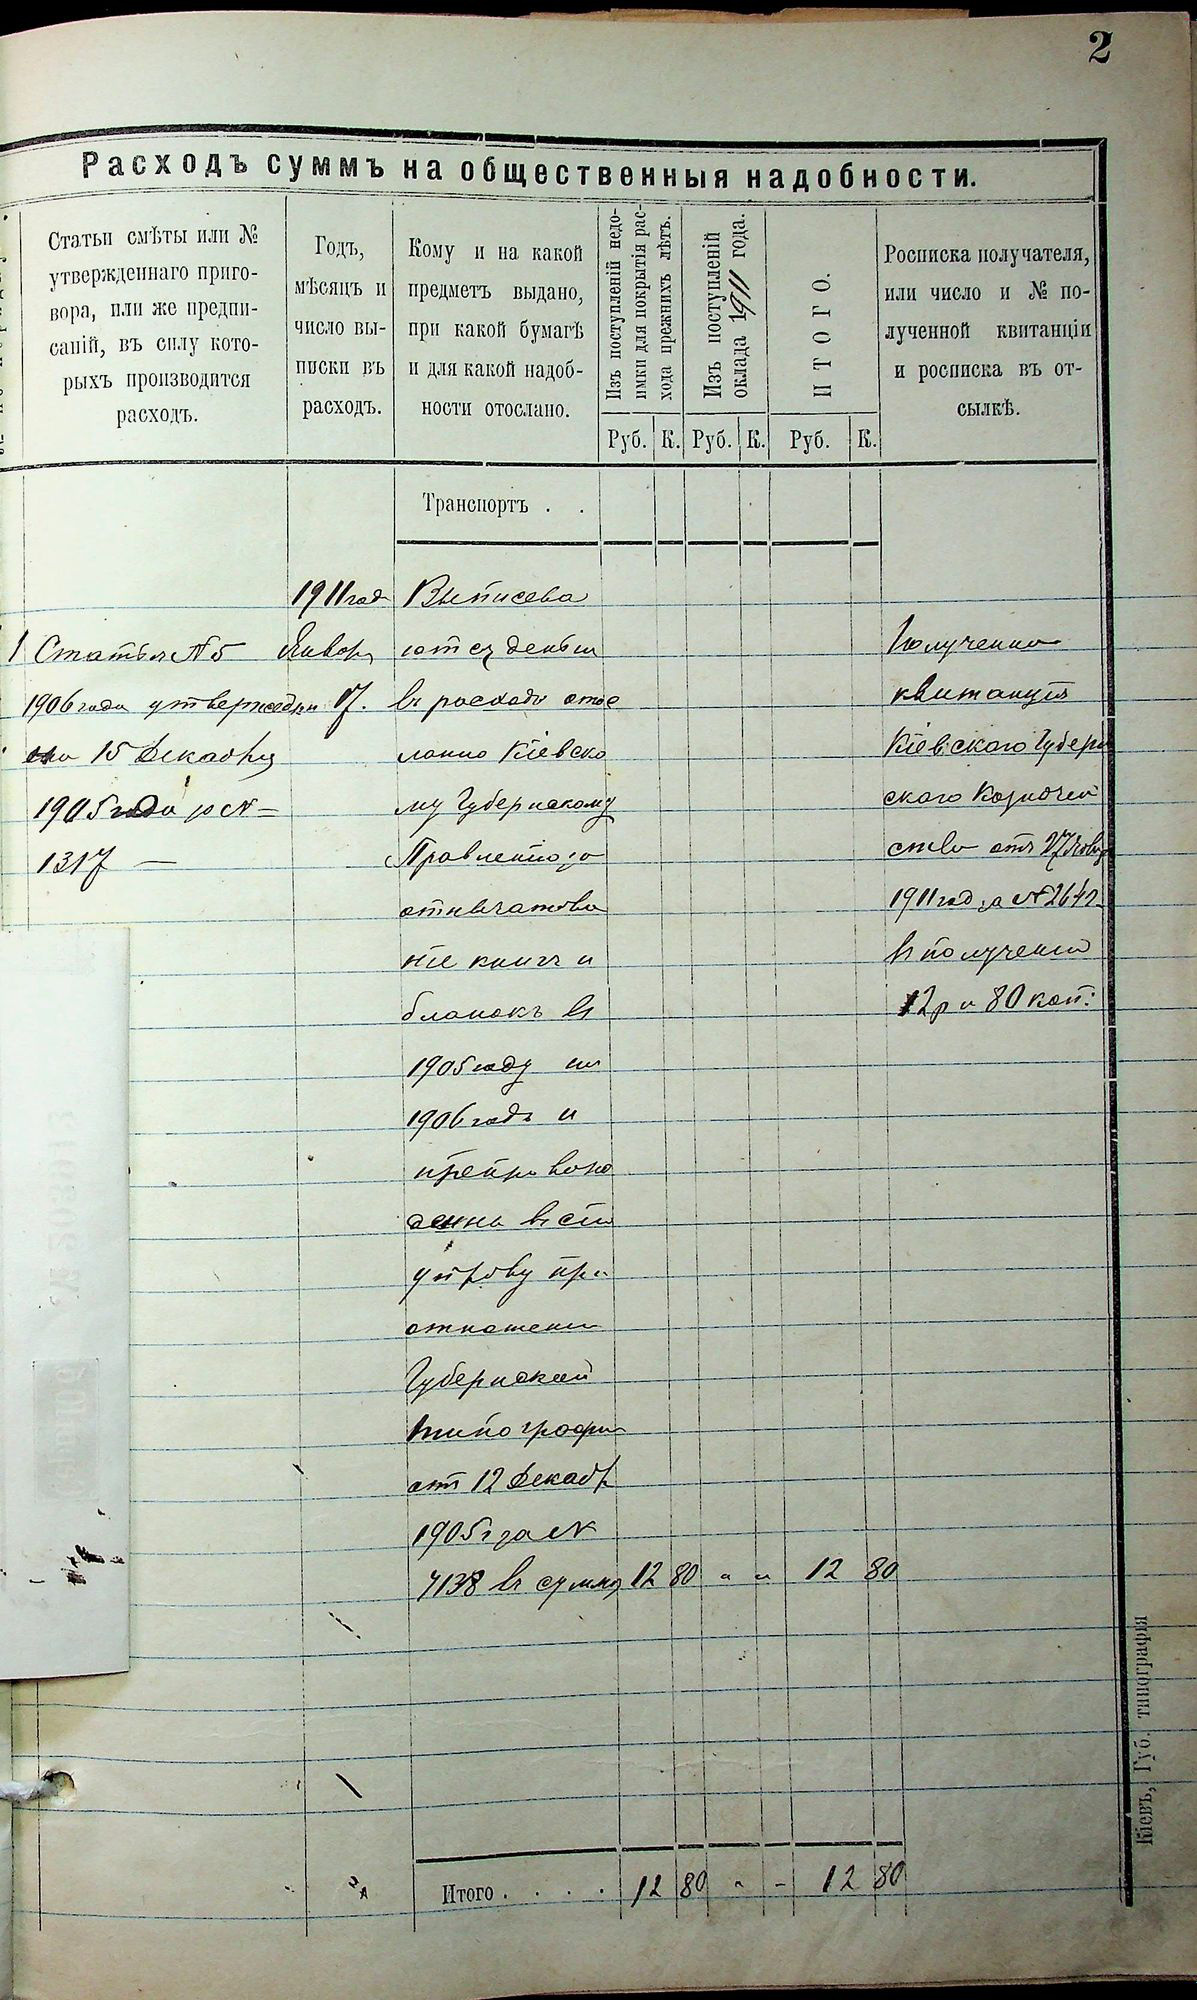 2
Расходъ суммъ на общественныя надобности.
Статьи смѣты или №
утвержденнаго приго-
вора, или же предпи-
саній, въ силу кото-
рыхъ производится
расходъ.
Годъ,
мѣсяцъ и
число вы-
писки въ
расходъ.
Кому и на какой
предметъ выдано,
при какой бумагѣ
и для какой надоб-
ности отослано.
Изъ поступленій недо-
имки для покрытія рас-
хода прежнихъ лѣтъ.
Изъ поступленій
оклада 1911 года.
ИТОГО.
Росписка получателя,
или число и № по-
лученной квитанціи
и росписка въ от-
сылкѣ.
Руб. К. Руб. К. Руб. К.
Транспортъ . .
1 Статья № 5
1906 года утвержден
15 Декабря
1905 года за №
1317 —
1911 год
Январ
17.
Выписева
ются деньги
въ расходъ отос
ланно Кіевско
му Губернскому
Правленію за
отпечатова
ніе книгъ и
бланокъ въ
1905 году на
1906 годъ и
препровож
денна
управу при
отношени
Губернской
типографи
отъ 12 Декабр
1905 г за №
7138 въ сумму 12 80 " " 12 80
Полученно
квитанція
Кіевскаго Губерн
скаго Казначей
ства отъ 27 Январ
1911 год за №
въ полученіи
12 р и 80 коп:
Итого . . . . 12 80 " - 12 80
Кіевъ, Губ. типографія